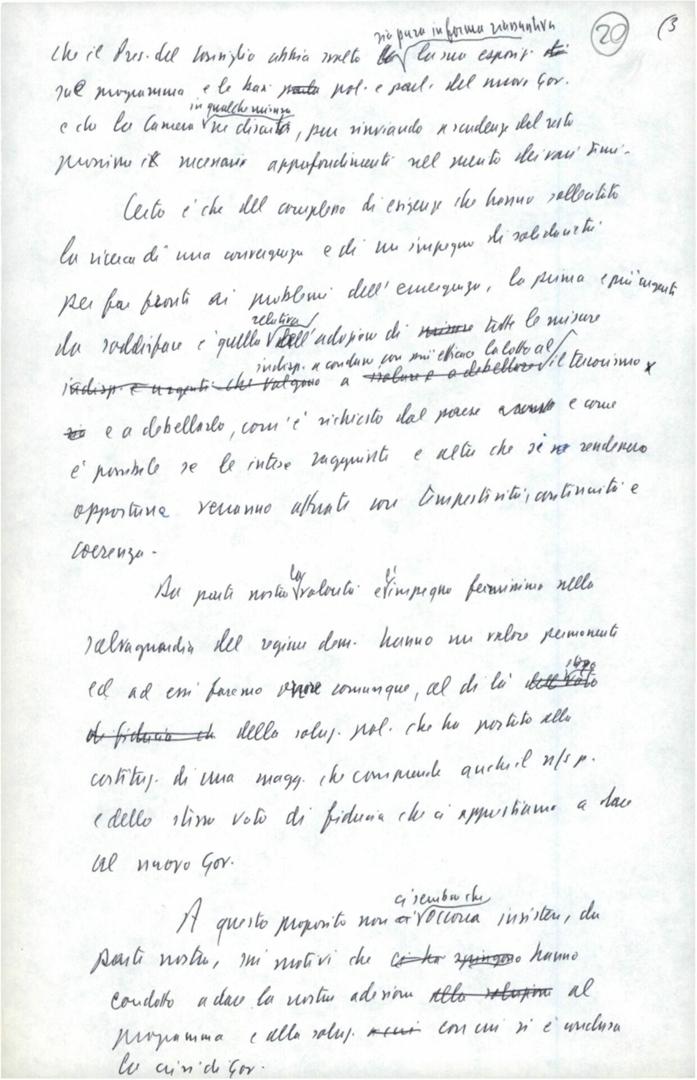 sia pure in forma riassuntiva
20
(3
che il Pres. del Consiglio abbia svolto la sua esposiz.
sul programma e le basi pol. e parl. del nuovo Gov.
in qualche misura
e che la Camera ne discuta, pur rinviando a scadenze del resto
prossime il necessario approfondimento nel merito dei vari temi.
Certo è che del complesso di esigenze che hanno sollecitato
la ricerca di una convergenza e di un impegno di solidarietà
per far fronte ai problemi dell'emergenza, la prima e più urgente
relativa
da soddisfare è quella dell'adozione di misure tutte le misure
indisp. a condurre con più efficacia la lotta al
indisp. e urgenti che valgono a isolare e a debellare il terrorismo
e a debellarlo, com'è richiesto dal paese e come
è possibile se le intese raggiunte e altre che si rendessero
opportune verranno attuate con tempestività, continuità e
coerenza.
Da parte nostra la volontà e l'impegno fermissimo nella
salvaguardia del regime dem. hanno un valore permanente
stesso
ed ad essi faremo onore comunque, al di là dello voto
di fiducia ch della soluz. pol. che ha portato alla
costituz. di una magg. che comprende anche il n/s p.
e dello stesso voto di fiducia che ci apprestiamo a dare
al nuovo Gov.
ci sembra che
A questo proposito non occorra insistere, da
parte nostra, sui motivi che ci ha spingono hanno
condotto a dare la nostra adesione alla soluzione al
programma e alla soluz. con cui si è conclusa
la crisi di Gov.